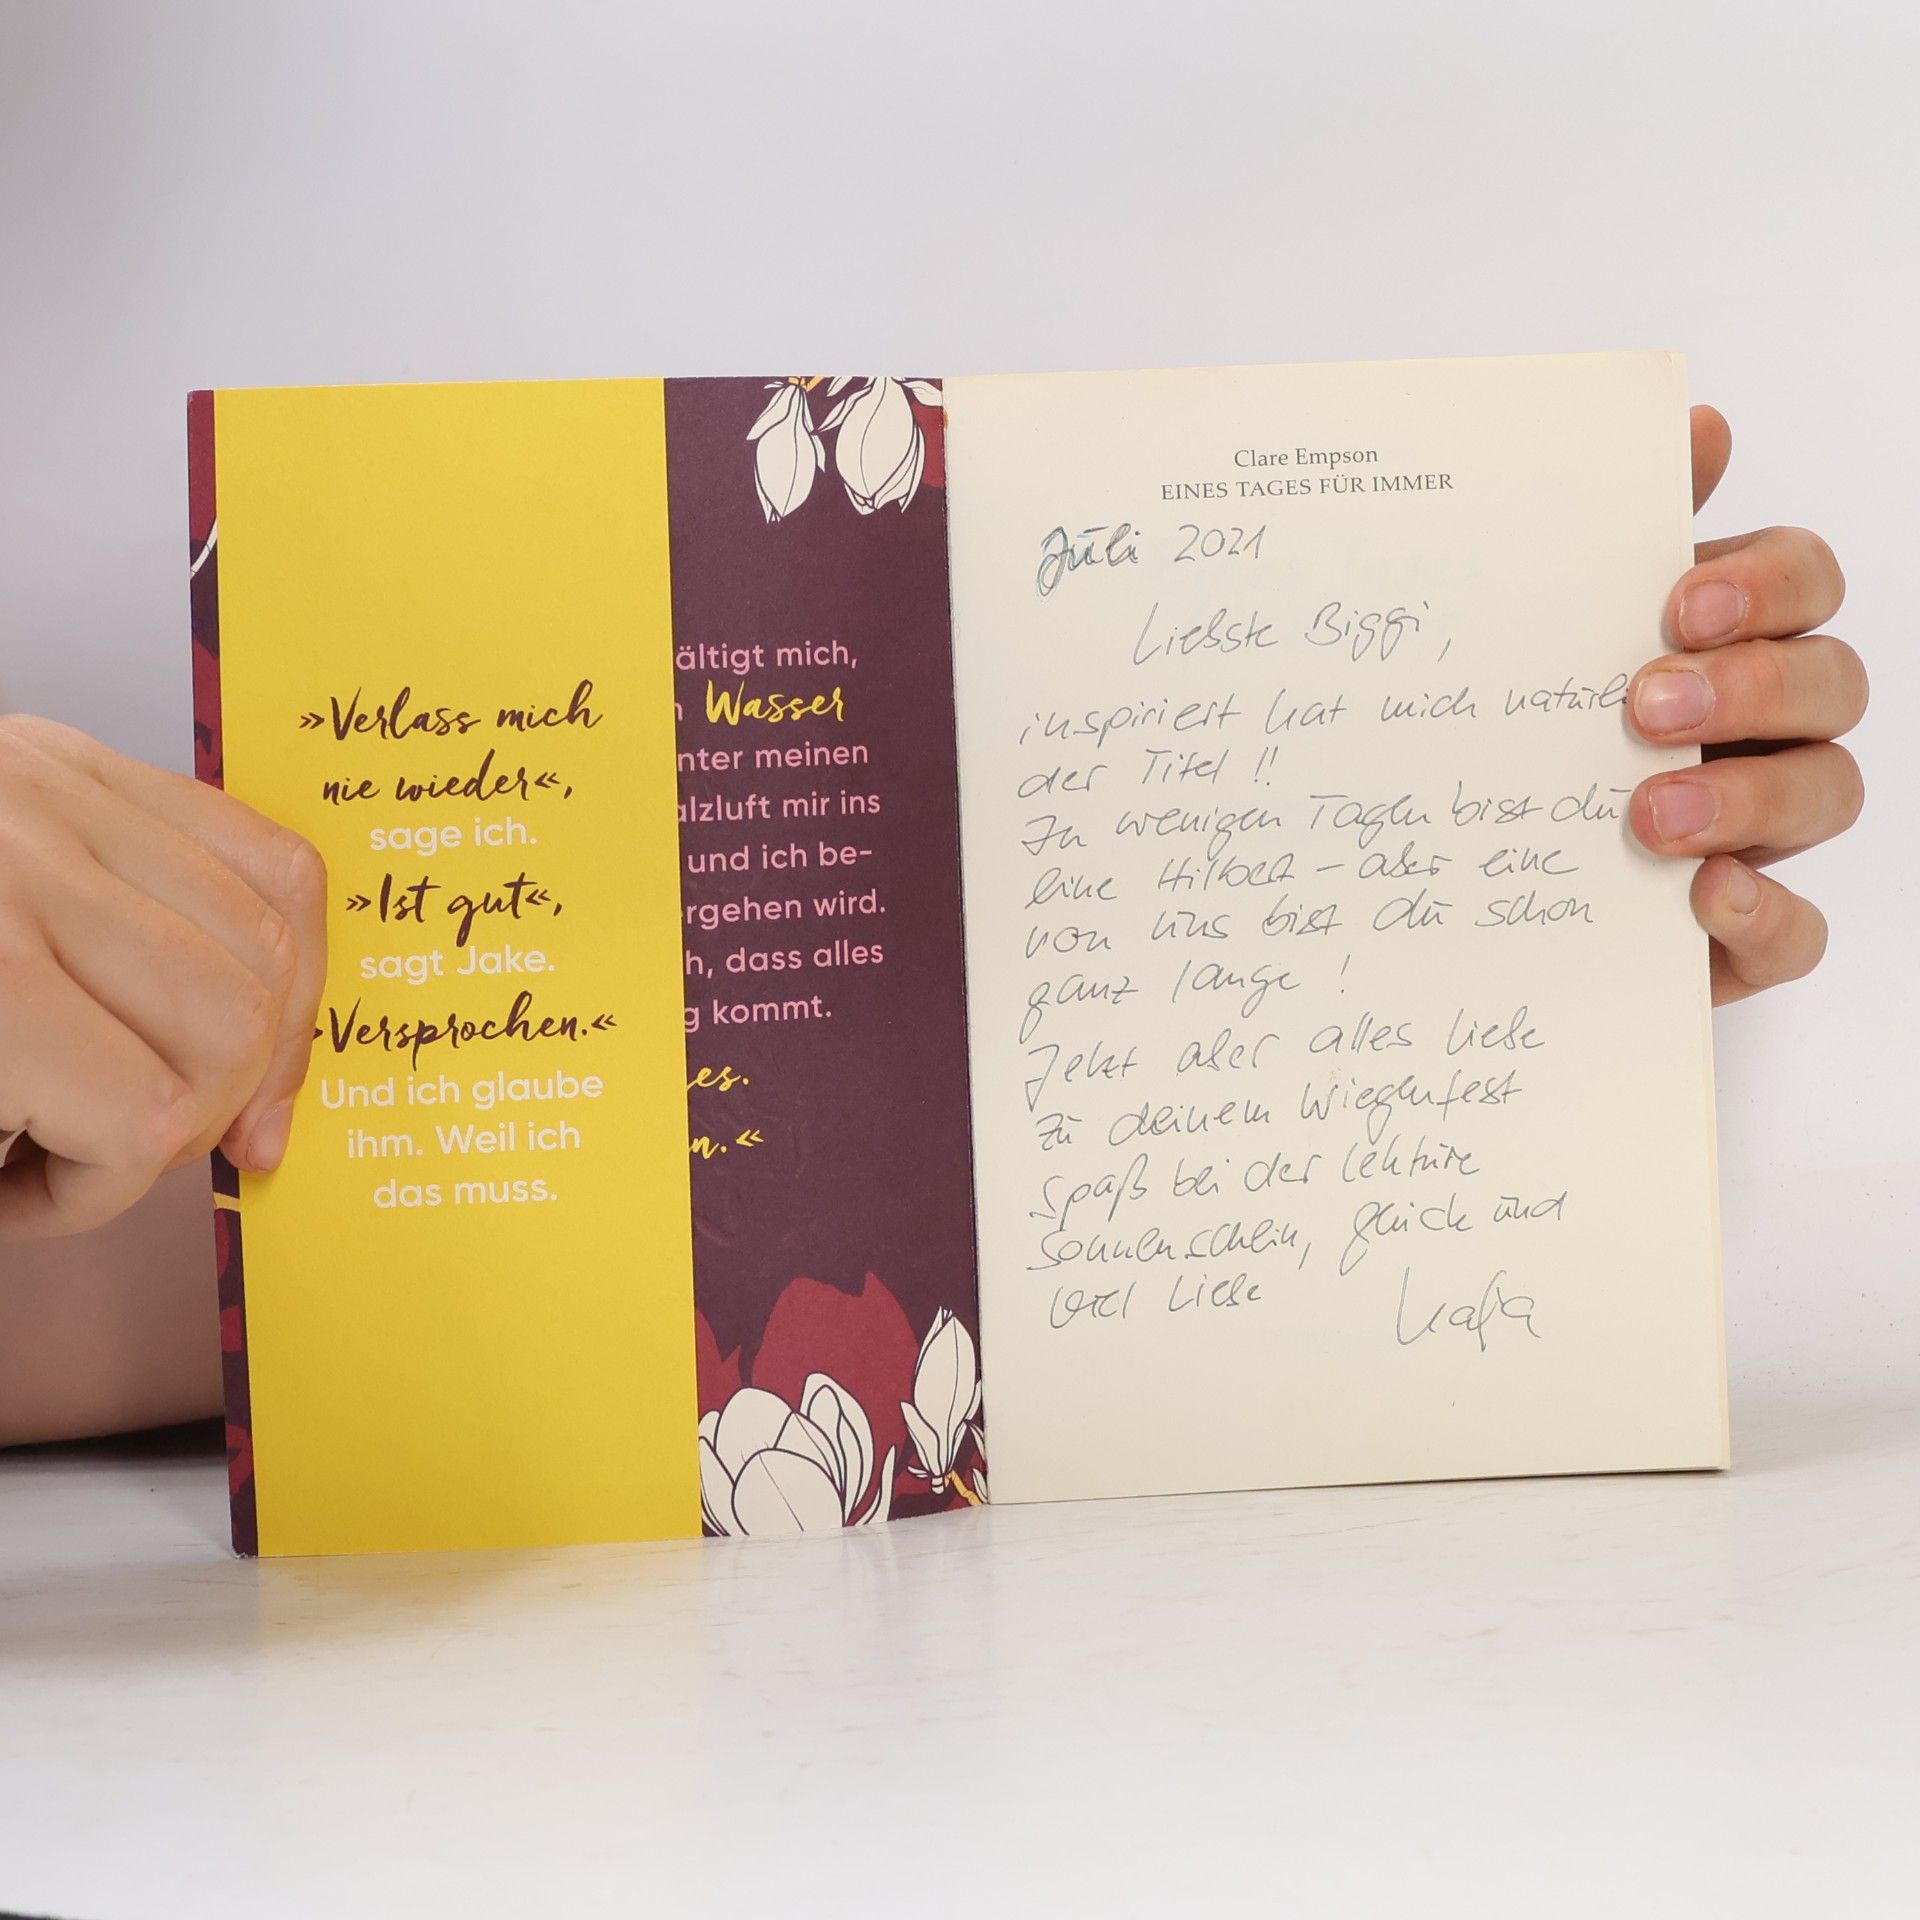 »Verlass mich
nie wieder«,
sage ich.
»Ist gut«,
sagt Jake.
»Versprochen.«
Und ich glaube
ihm. Weil ich
das muss.
ältigt mich,
n Wasser
nter meinen
alzluft mir ins
und ich be-
rgehen wird.
h, dass alles
g kommt.
es.
n.«
Clare Empson
EINES TAGES FÜR IMMER
Juli 2021
Liebste Biggi,
inspiriert hat mich natürli
der Titel!!
In wenigen Tagen bist du
eine Hilbert – aber eine
von uns bist du schon
ganz lange!
Jetzt aber alles Liebe
zu deinem Wiegenfest
Spaß bei der Lektüre
Sonnenschein, Glück und
viel Liebe
Katja